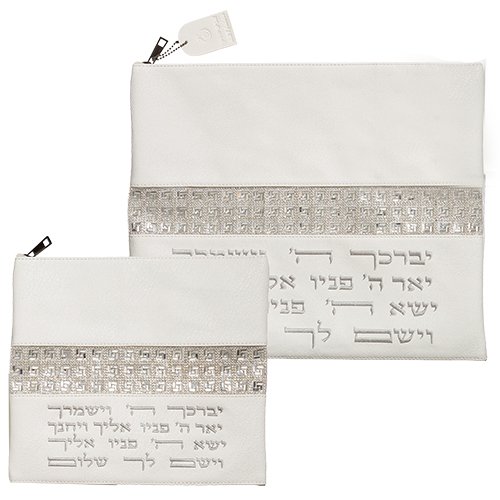 יברכך ה' וישמרך
יאר ה' פניו אלי
ישא ה' פניו
וישם לך
יברכך ה' וישמרך
יאר ה' פניו אליך ויחנך
ישא ה' פניו אליך
וישם לך שלום